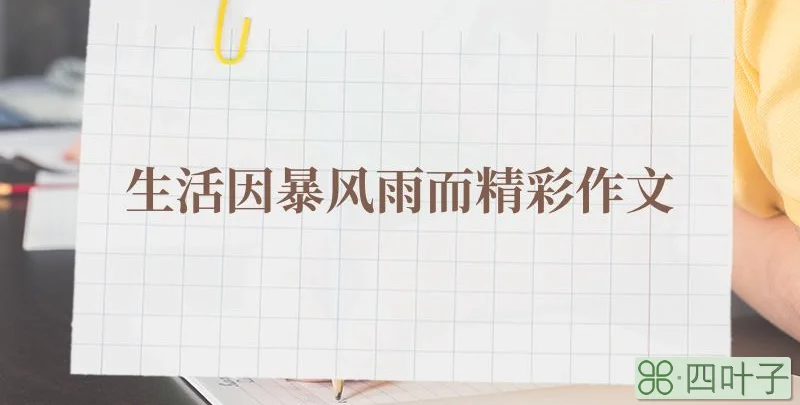 生活因暴风雨而精彩作文
⌘·四叶子